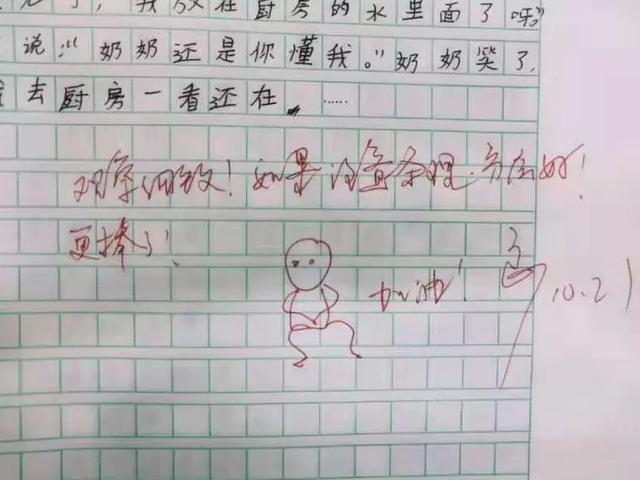 了,我放在厨房的水里面了呀。"
说:"奶奶还是你懂我。"奶奶笑了,
去厨房一看还在……
观察细致!如果注意条理、书写好!
更棒了!
加油!
10.21